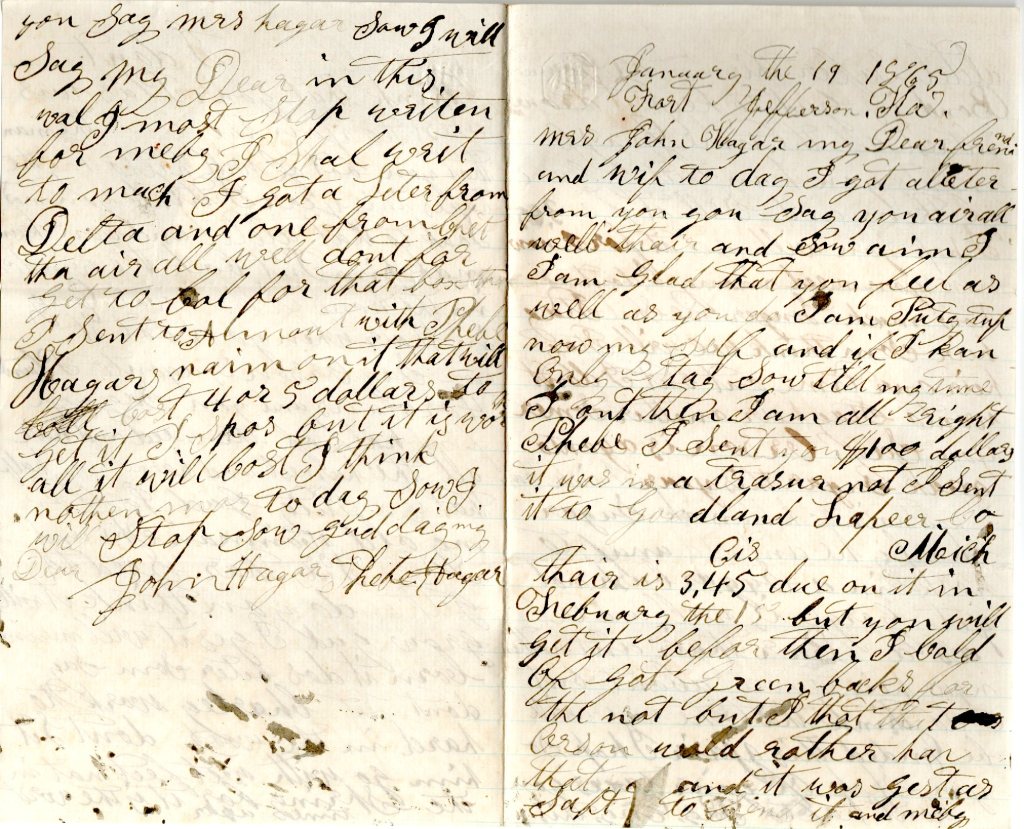 you Say mrs hagar Sow I will
Say my Dear in this
wal I most Stop writen
for meby I Shal writ
to mach I got a Leter from
Delta and one from Chet
tha air all well dont for
get to Col for that box
I Sent to Almont with Phebe
Hagar, naim on it that will
Cost 4 or 5 dollars to
get it I Spos but it is wor
all it will Cost I think
nothen mor to day Sow I
wil Stop Sow gud day my
Dear John Hagar Phebe Hagar
January the 19 1865
Fort Jefferson. Fla.
mrs John Hagar my Dear friend
and wif to day I got a leter
from you you Say you air all
well thair and Sow aim I
I am Glad that you feel as
well as you do I am Puty tuf
now my Self and if I kan
Only Stay Sow till my time
I out then I am all Right
Phebe I Sent you $100 dollars
it was in a trasur not I Sent
it to Goodland Lapeer Co
Cis Meich
thair is 3,45 due on it in
Febuary the 15 but you will
get it befor then I Cold
Of got green backs for
the not but I thot that
Orson wold rather hav
that and it was gest as
Saft to Send it and meby